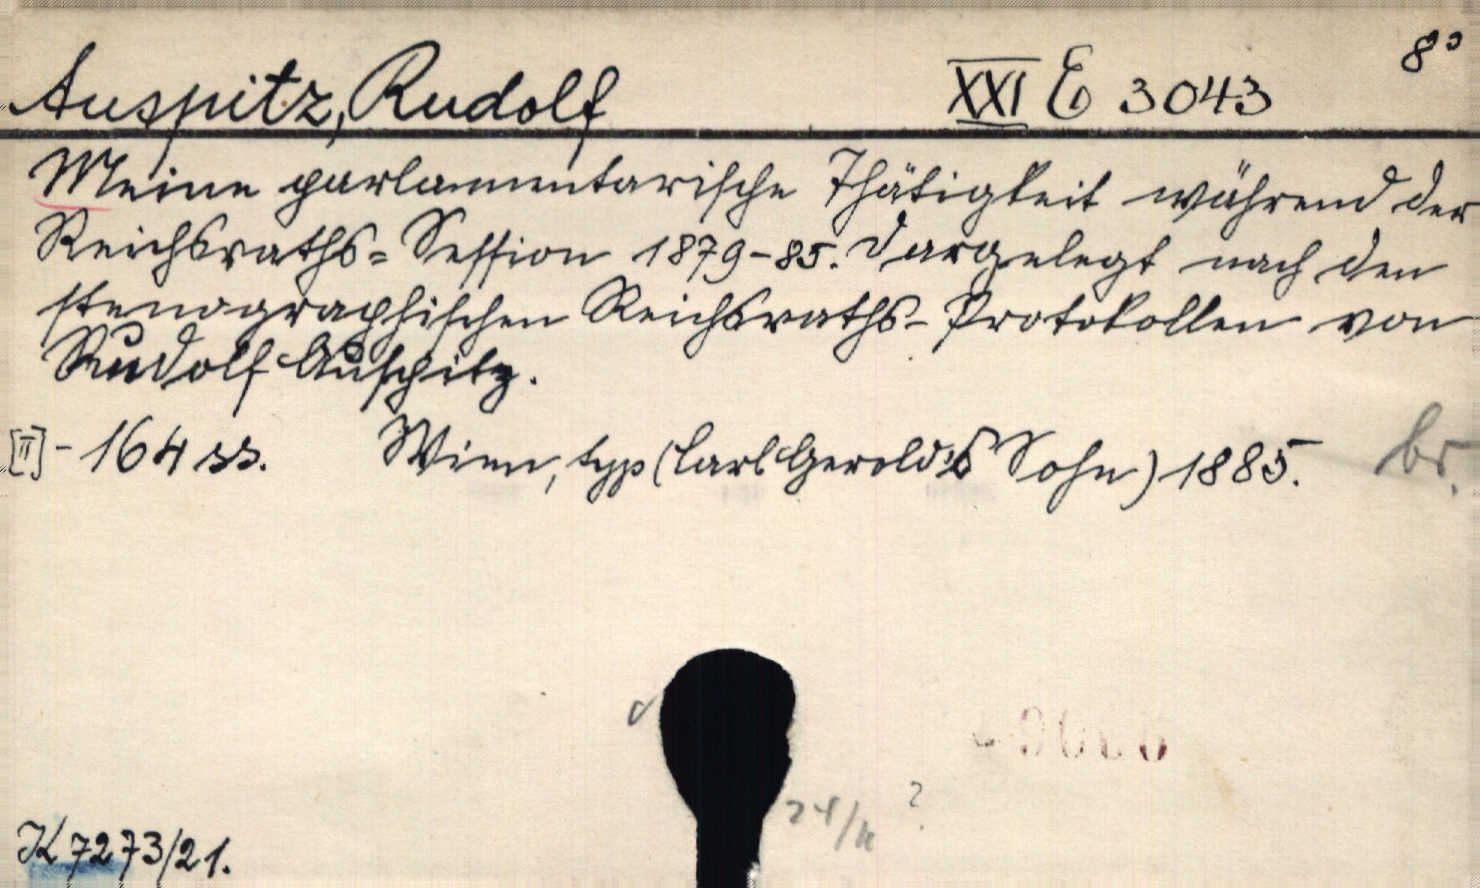 8°
Auspitz, Rudolf XXI E 3043
Meine parlamentarische Thätigkeit während der
Reichsraths-Session 1879-85. Dargelegt nach den
stenographischen Reichsraths-Protokollen von
Rudolf Auspitz.
[II] - 164 ss. Wien, typ (Carl Gerold's Sohn) 1885. br.
?
K 7273/21.